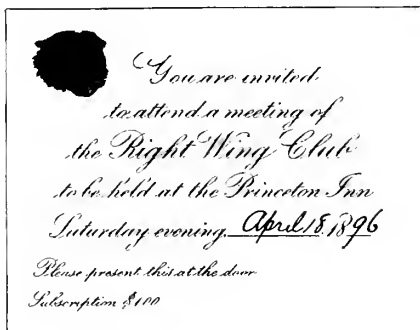 You are invited
to attend a meeting of
the Right Wing Club
to be held at the Princeton Inn
Saturday evening, April 18, 1896
Please present this at the door
Subscription $1.00